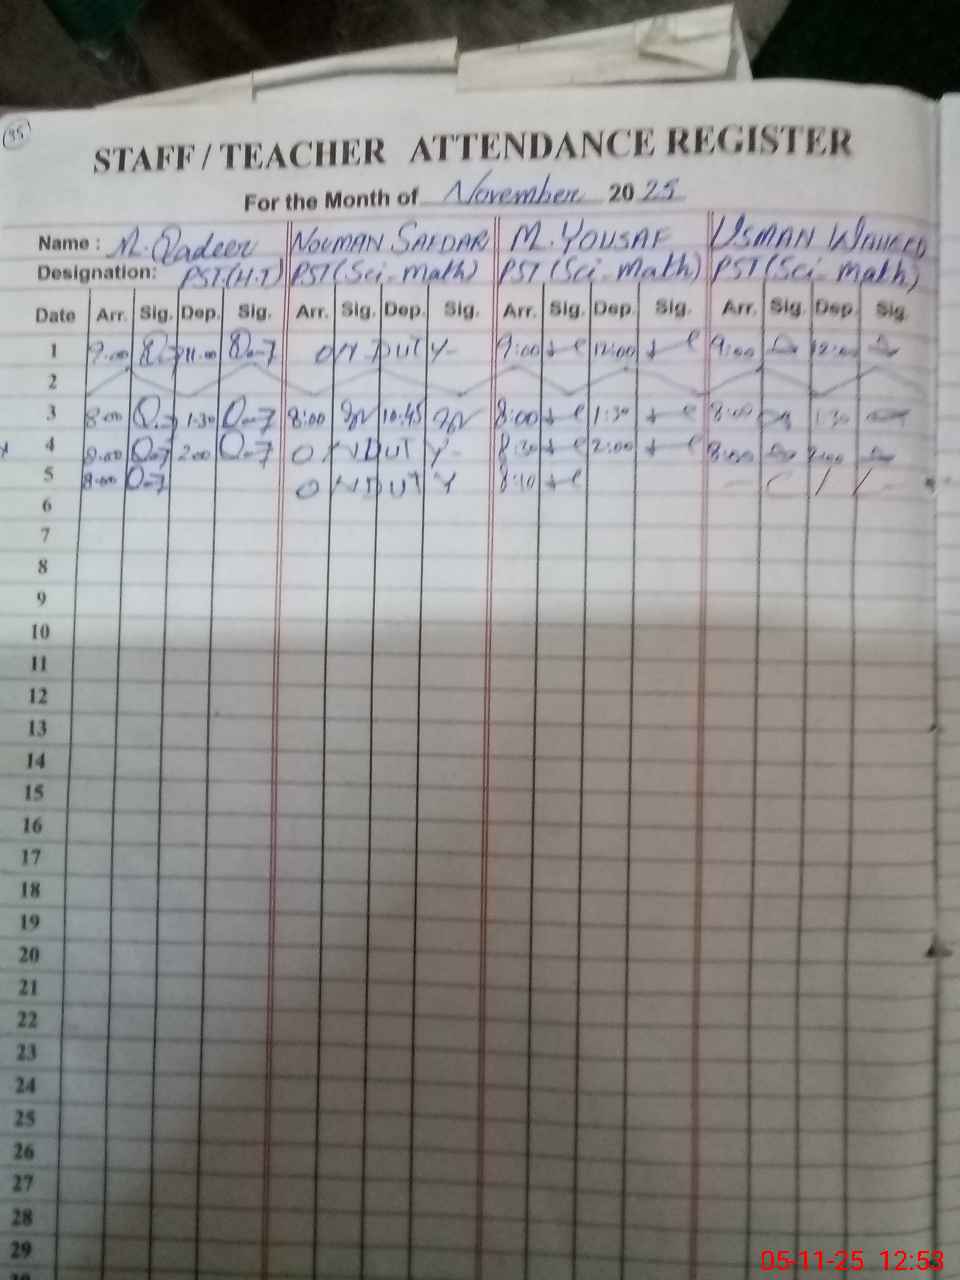 35
STAFF / TEACHER ATTENDANCE REGISTER
For the Month of November 2025
Name : M. Qadeer NOUMAN SAFDAR M. YOUSAF USMAN WAHEED
Designation: PST (H.T) PST (Sci-Math) PST (Sci-Math) PST (Sci-Math)
Date Arr. Sig. Dep. Sig. Arr. Sig. Dep. Sig. Arr. Sig. Dep. Sig. Arr. Sig. Dep. Sig.
1 9.00 11.00 ON DUTY 9:00 12:00 9:00 12:00
2
3 8.00 1.30 8:00 10:45 8:00 1:30 8:00 1:30
4 8.00 2.00 ON DUTY 8:30 2:00 8:00 2:00
5 8.00 ON DUTY 8:10
6
7
8
9
10
11
12
13
14
15
16
17
18
19
20
21
22
23
24
25
26
27
28
29
05-11-25 12:53